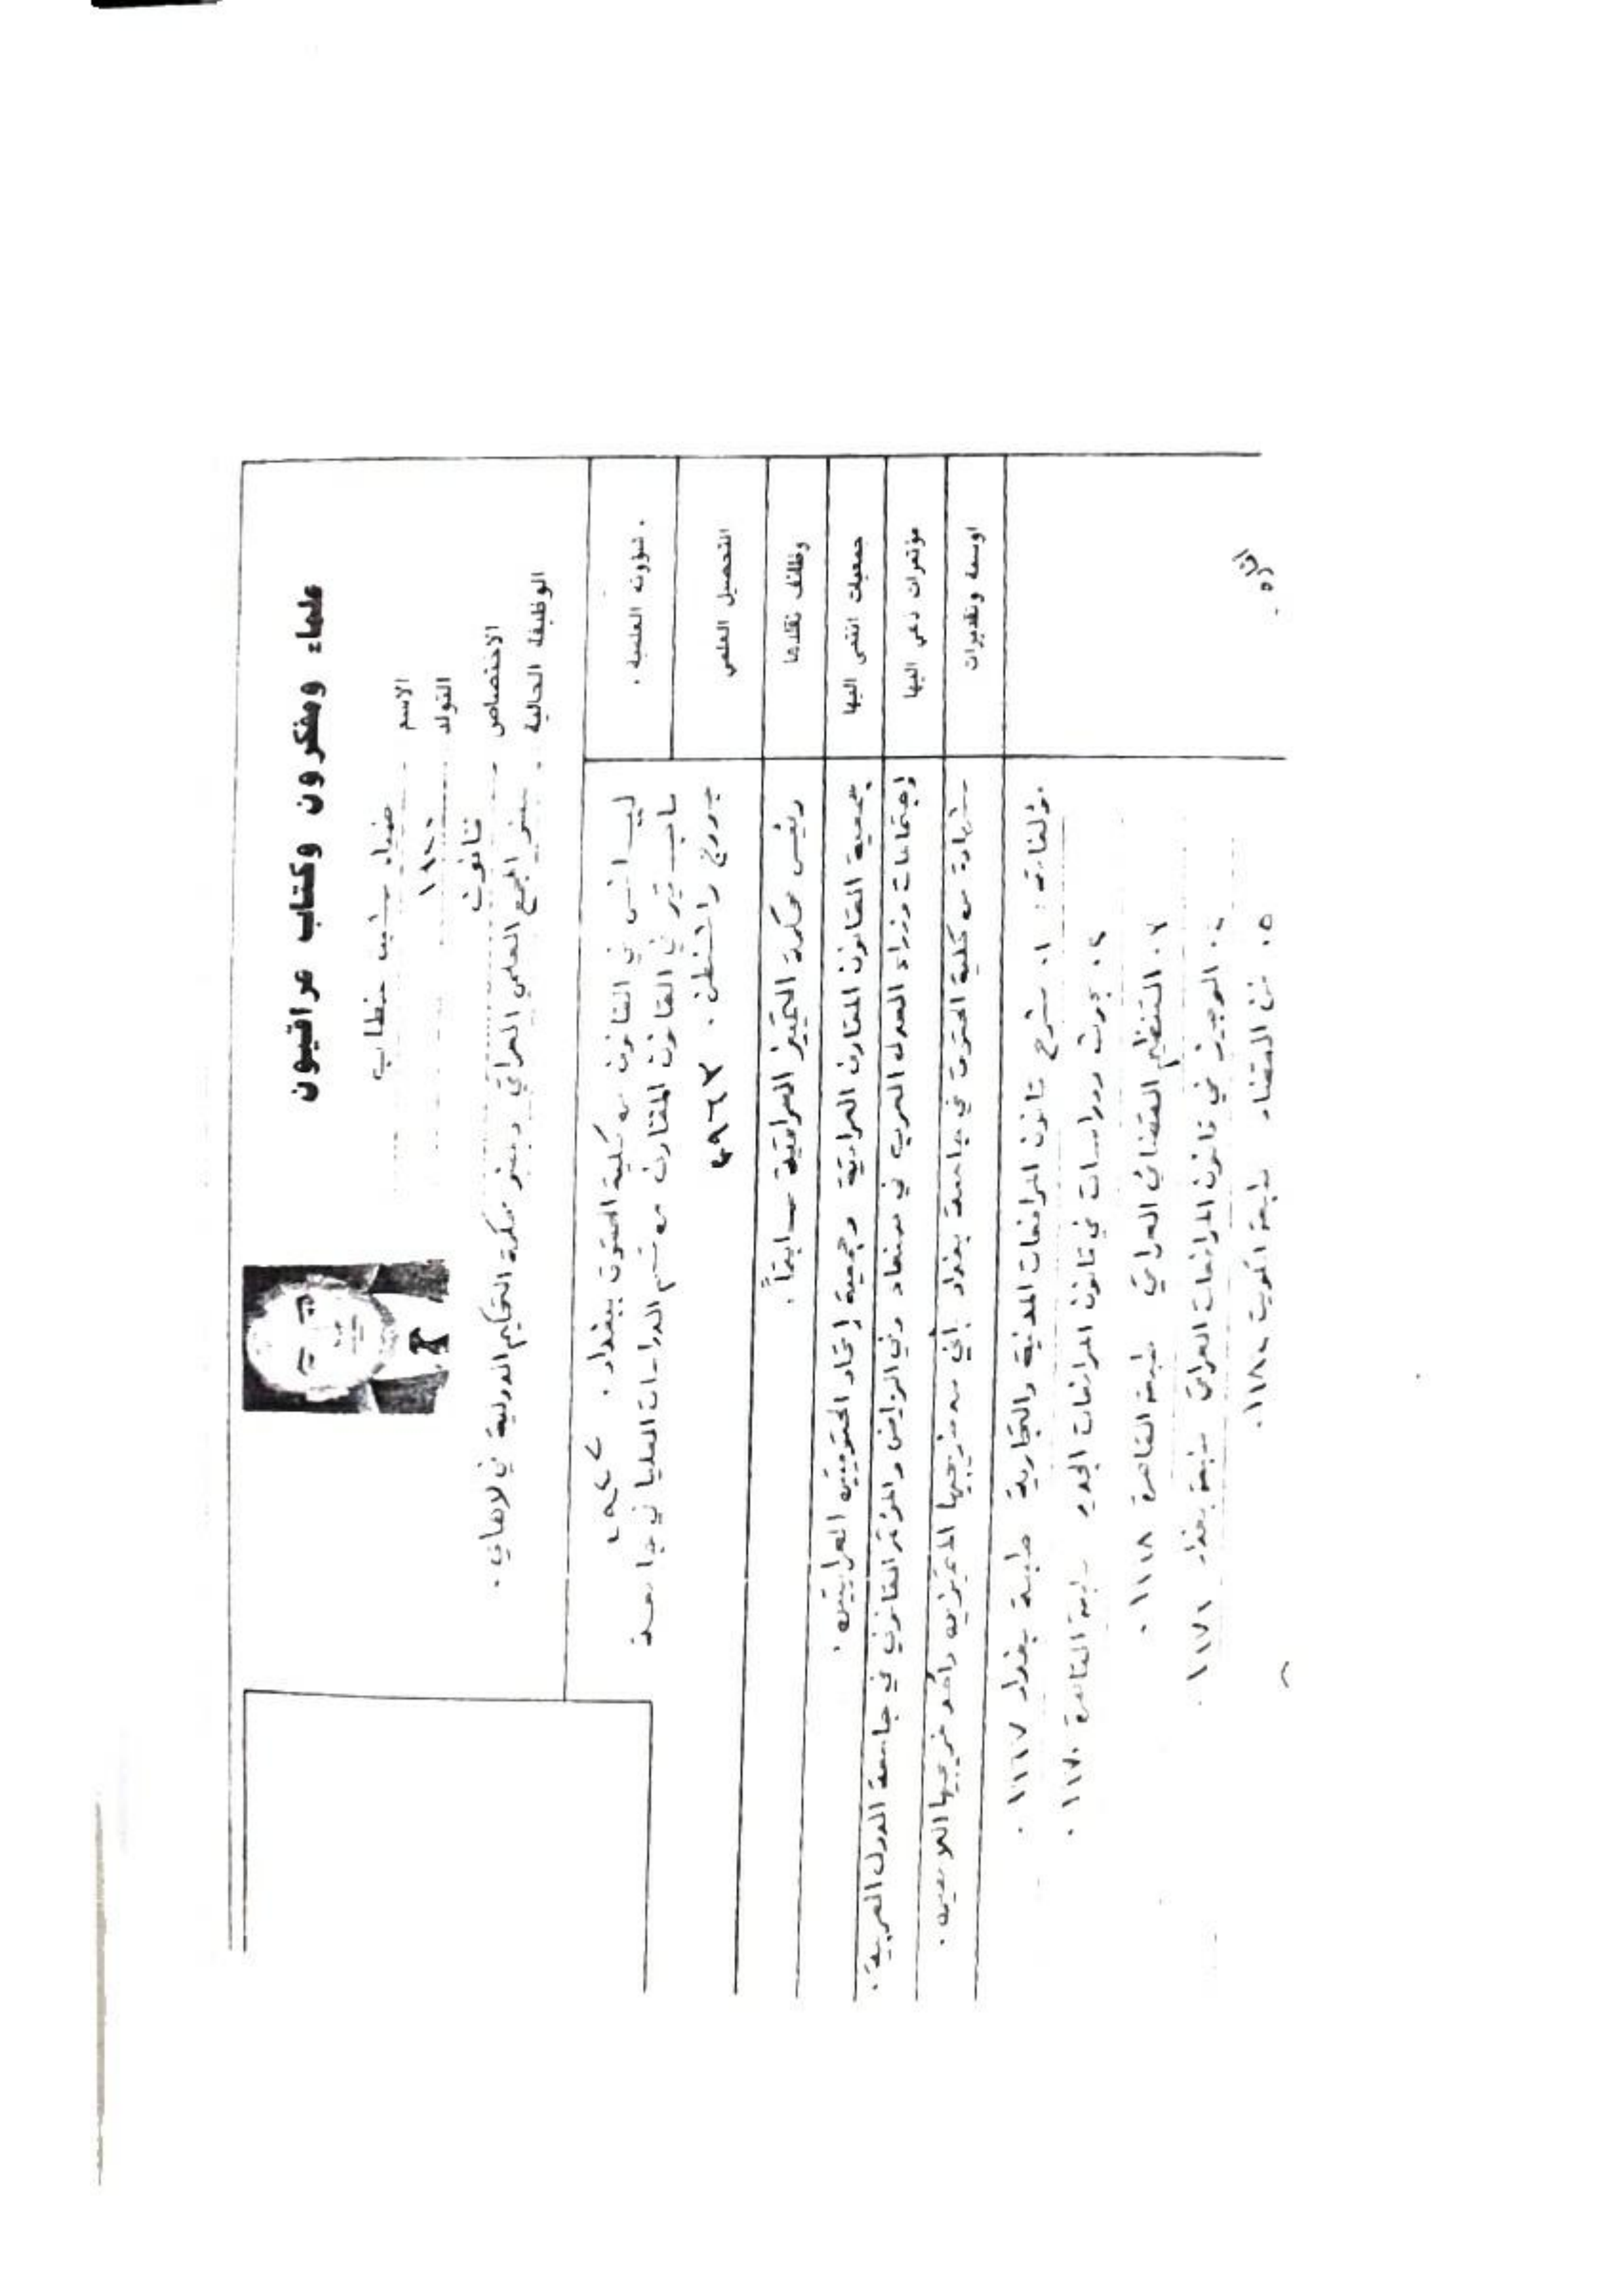 علماء ومفكرون وكتاب عراقيون
الاسم - ضياء شيت خطاب
التولد
الاختصاص - قانون
الوظيفة الحالية - عضو المجمع العلمي العراقي وعضو محكمة التحكيم الدولية في لاهاي .
شؤونه العلمية .
ليسانس في القانون من كلية الحقوق ببغداد .
ماجستير في القانون المقارن من قسم الدراسات العليا في جامعة
التحصيل العلمي
جورج واشنطن . ١٩٦٣
وظائف تقلدها
رئيس محكمة التمييز العراقية سابقاً .
جمعيات انتمى اليها
جمعية القانون المقارن العراقية وجمعية إتحاد الحقوقيين العراقيين .
مؤتمرات دعي اليها
إجتماعات وزراء العدل العرب في صنعاء وفي الرياض والمؤتمر القانوني في جامعة الدول العربية .
اوسمة وتقديرات
شهادة من كلية الحقوق في جامعة بغداد
مؤلفاته : ١. شرح قانون المرافعات المدنية والتجارية طبعة بغداد ١٩٦٧ .
٢. بحوث ودراسات في قانون المرافعات الجديد طبعة القاهرة ١٩٧٠ .
٣. التنظيم القضائي العراقي طبعة القاهرة ١٩٦٨ .
٤. الوجيز في قانون المرافعات العراقي طبعة بغداد
٥. فن القضاء طبعة الكويت